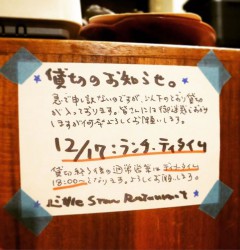 貸切のお知らせ。
急で申し訳ないのですが、以下のとおり貸切
が入っております。皆さんには御迷惑おかけ
しますが何卒よろしくお願いします。
12/17:ランチ・ティタイム
貸切終了後の通常営業はディナータイム
18:00〜となります。よろしくお願いします。
Little Star Restaurant